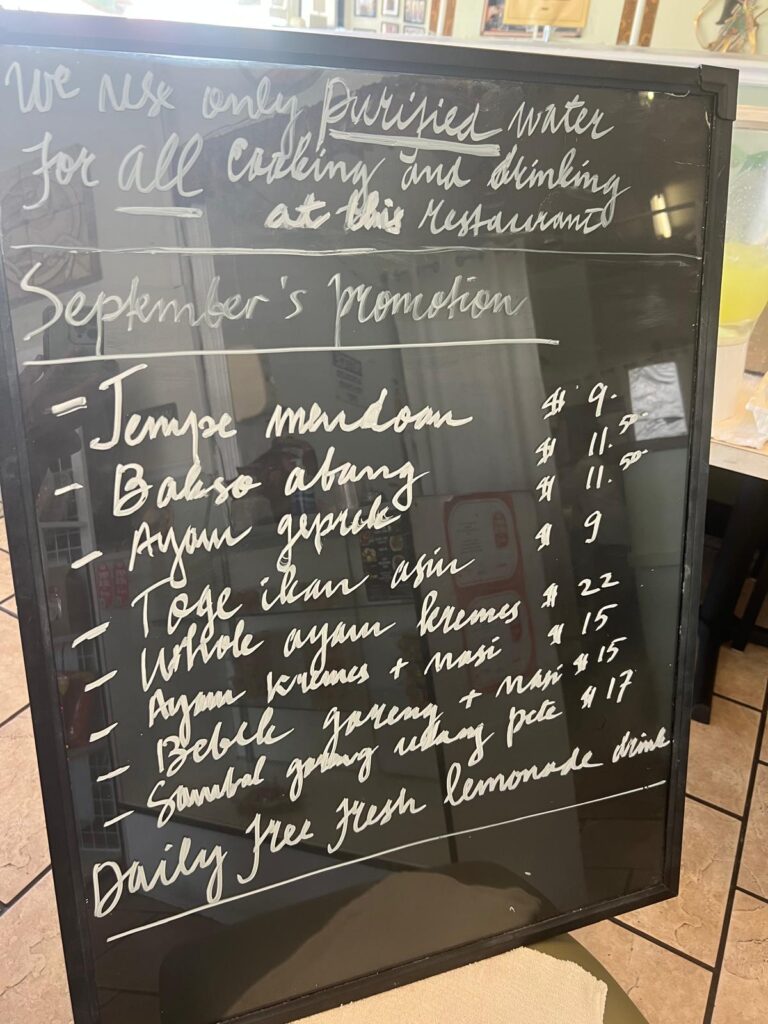 We use only purified water
for all cooking and drinking
at this restaurant
September's promotion
- Tempe mendoan $ 9.
- Bakso abang $ 11.50
- Ayam geprek $ 11.50
- Toge ikan asin $ 9
- Whole ayam kremes $ 22
- Ayam kremes + nasi $ 15
- Bebek goreng + nasi $ 15
- Sambal goreng udang pete $ 17
Daily free fresh lemonade drink